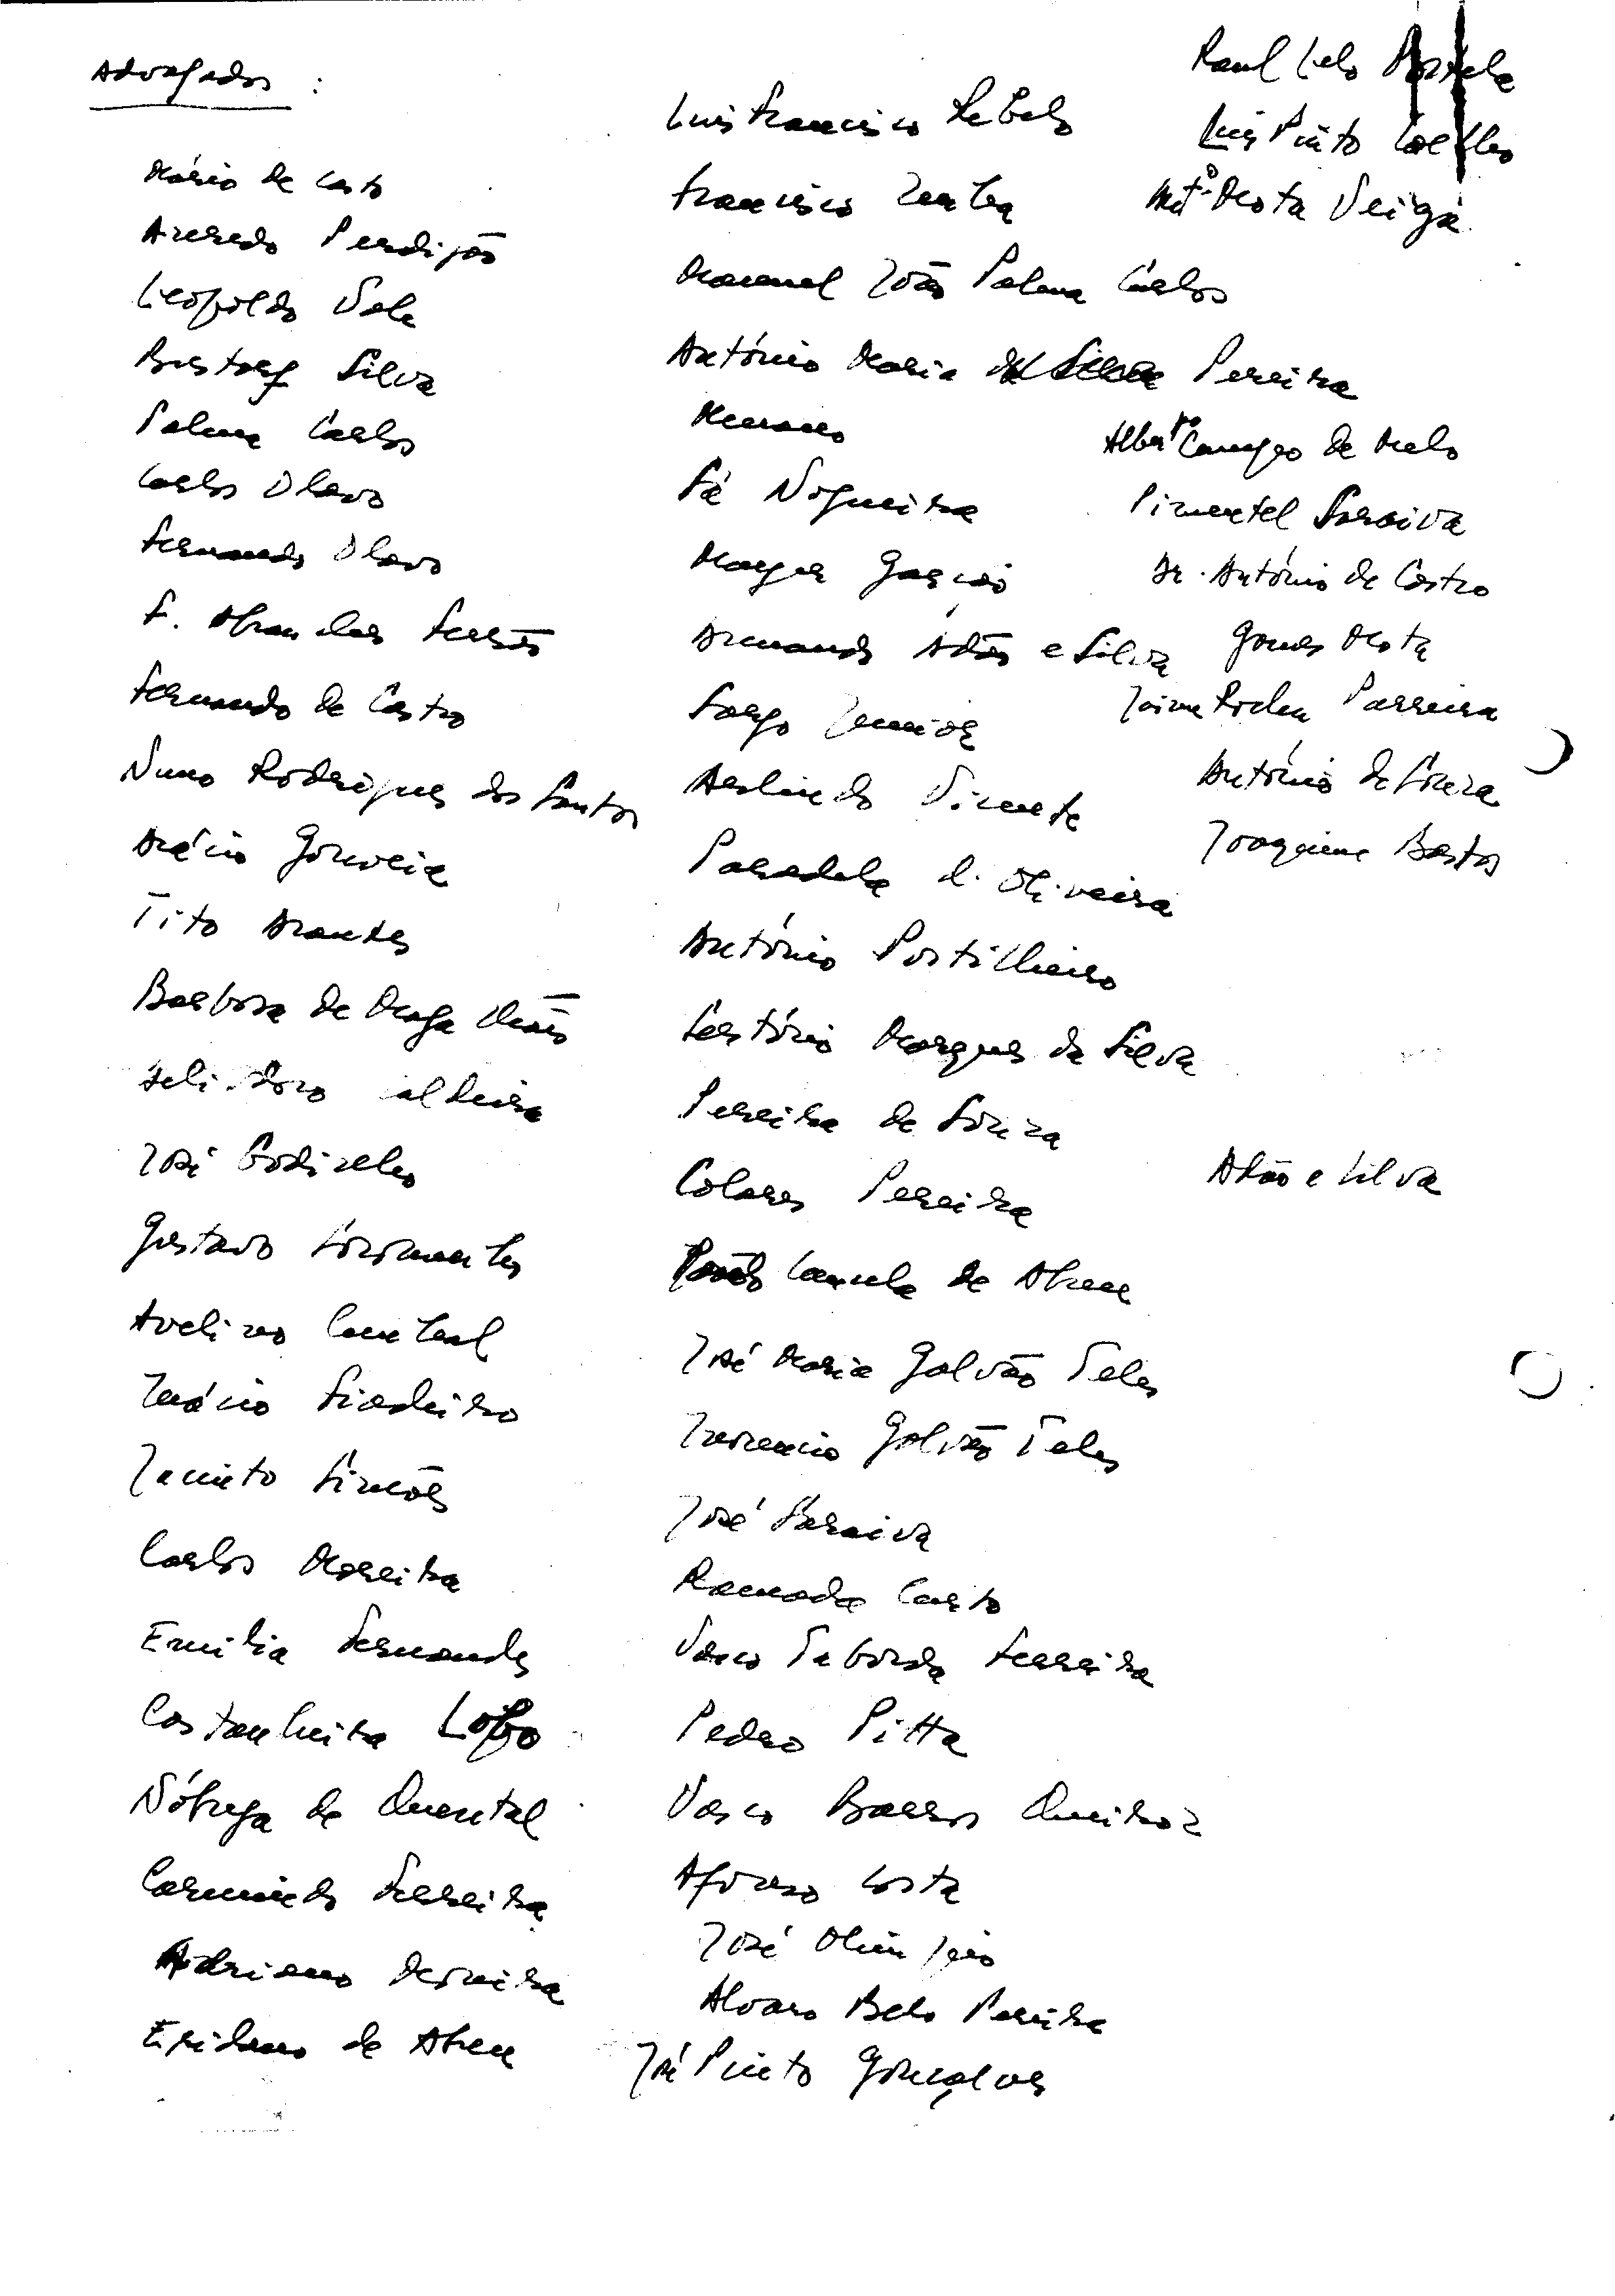 Advogados :
Mário de Castro
Azeredo Perdigão
Leopoldo Vale
Bustorf Silva
Palma Carlos
Carlos Olavo
Fernando Olavo
F. Abranches Ferrão
Fernando de Castro
Nuno Rodrigues dos Santos
Acácio Gouveia
Tito Arantes
Barbosa de Magalhães
Heliodoro Caldeira
José Godinho
Gustavo Soromenho
Avelino Cunhal
Inácio Fiadeiro
Jacinto Simões
Carlos Moreira
Emilia Fernandes
Castanheira Lobo
Nóbrega de Quental
Carmindo Ferreira
Adriano Moreira
de Abreu
Luis Francisco Rebelo
Francisco Zenha
Manuel João Palma Carlos
António Maria Pereira
Sá Nogueira
Mayer Garção
Armando Adão e Silva
Sargo Junior
Arlindo Vicente
Paradela d'Oliveira
António Portilheiro
Sertório Marques da Silva
Pereira de Souza
Colares Pereira
Cancela de Abreu
José Maria Galvão Teles
Inocencio Galvão Teles
José Saraiva
Ramada Curto
Vasco Taborda Ferreira
Pedro Pitta
Vasco Barros Queiroz
Afonso Costa
José Olimpio
Alvaro Belo Pereira
José Pinto Gonçalves
Raul Lelo Portela
Luis Pinto Coelho
Mota Veiga
Albertº Campeão de Melo
Pimentel Saraiva
Dr. António de Castro
Gomes Mota
Jaime Parreira
António de Souza
Joaquim Bastos
Adão e Silva